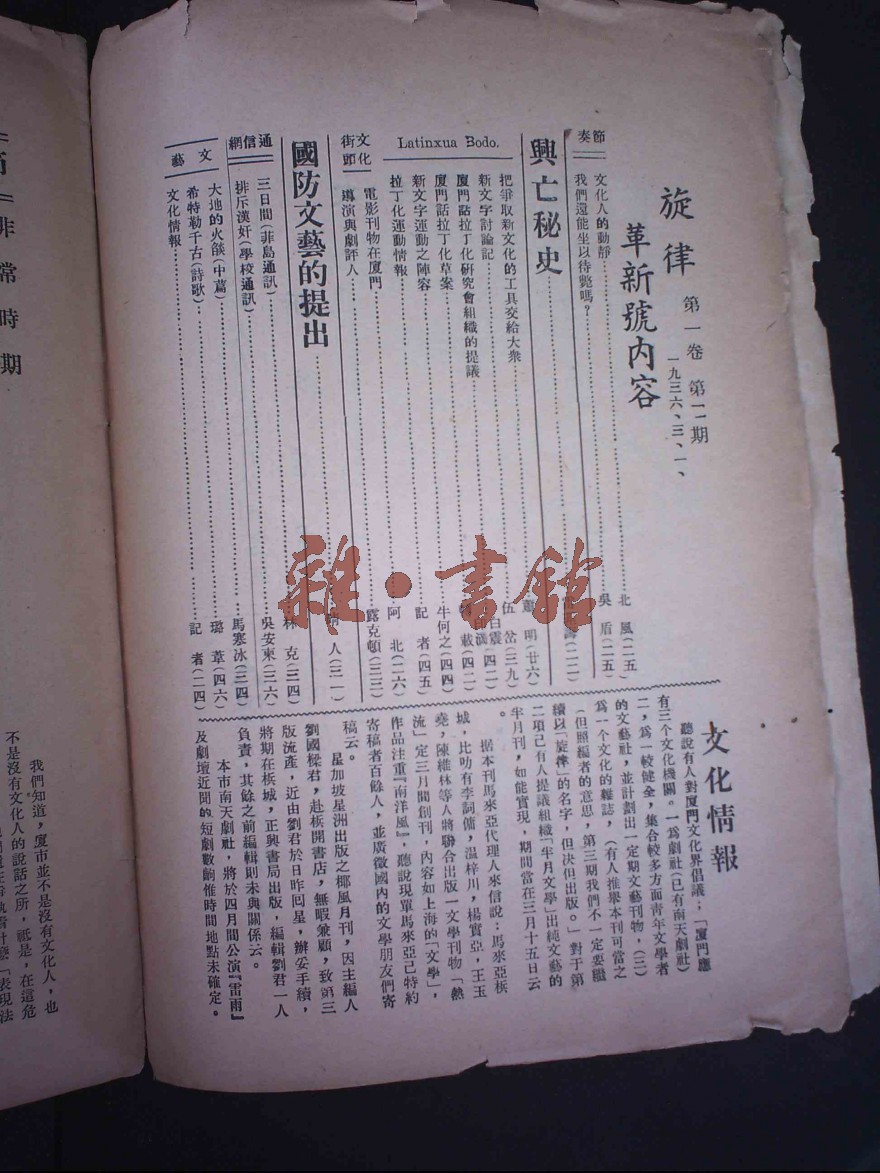 旋律 第一卷 第二期
一九三六、三、一、
革新號內容
節奏
文化人的動靜 北風(二五)
我們還能坐以待斃嗎? 吳盾(二五)
興亡秘史
Latinxua Bodo.
把爭取新文化的工具交給大衆 蕭明(廿六)
新文字討論記 伍岔(三九)
廈門話拉丁化研究會組織的提議 白震(四二)
廈門話拉丁化草案 載(四二)
新文字運動之陣容 牛何之(四四)
拉丁化運動情報 記者(四五)
文化街頭
電影刊物在廈門 阿北(二六)
導演與劇評人 露克頓(三三)
國防文藝的提出 人(三一)
通信網
三日間(菲島通訊) 林克(三四)
排斥漢奸(學校通訊) 吳安東(三六)
文藝
大地的火燄(中篇) 馬寒冰(三四)
希特勒千古(詩歌) 璐葦(四六)
文化情報 記者(二四)
雜·書館
文化情報
聽說有人對廈門文化界倡議:「廈門應
有三個文化機關。一爲劇社(已有南天劇社)
二,爲一較健全,集合較多方面靑年文學者
的文藝社,並計劃出一定期文藝刊物,(三)
爲一個文化的雜誌,(有人推舉本刊可當之
(但照編者的意思,第三期我們不一定要繼
續以「旋律」的名字,但决但出版。」對于第
二項己有人提議組織「半月文學」出純文藝的
半月刊,如能實現,期間當在三月十五日云
。
据本刊馬來亞代理人來信說:馬來亞梹
城,比叻有李詞傭,温梓川,楊實亞,王玉
堯,陳維林等人將聯合出版一文學刊物「熱
流」定三月間創刊,內容如上海的「文學」,
作品注重『南洋風』,聽說現單馬來亞已特約
寄稿者百餘人,並廣徵國內的文學朋友們寄
稿云。
星加坡星洲出版之椰風月刊,因主編人
劉國樑君,赴梹開書店,無暇兼顧,致第三
版流產,近由劉君於日昨囘星,辦妥手續,
將期在梹城,正興書局出版,編輯劉君一人
負責,其餘之前編輯則未與關係云。
本市南天劇社,將於四月間公演『雷雨』
及劇壇近聞的短劇數齣惟時間地點未確定。
非常時期
我們知道,廈市並不是沒有文化人,也
不是沒有文化人的說話之所,祇是,在這危